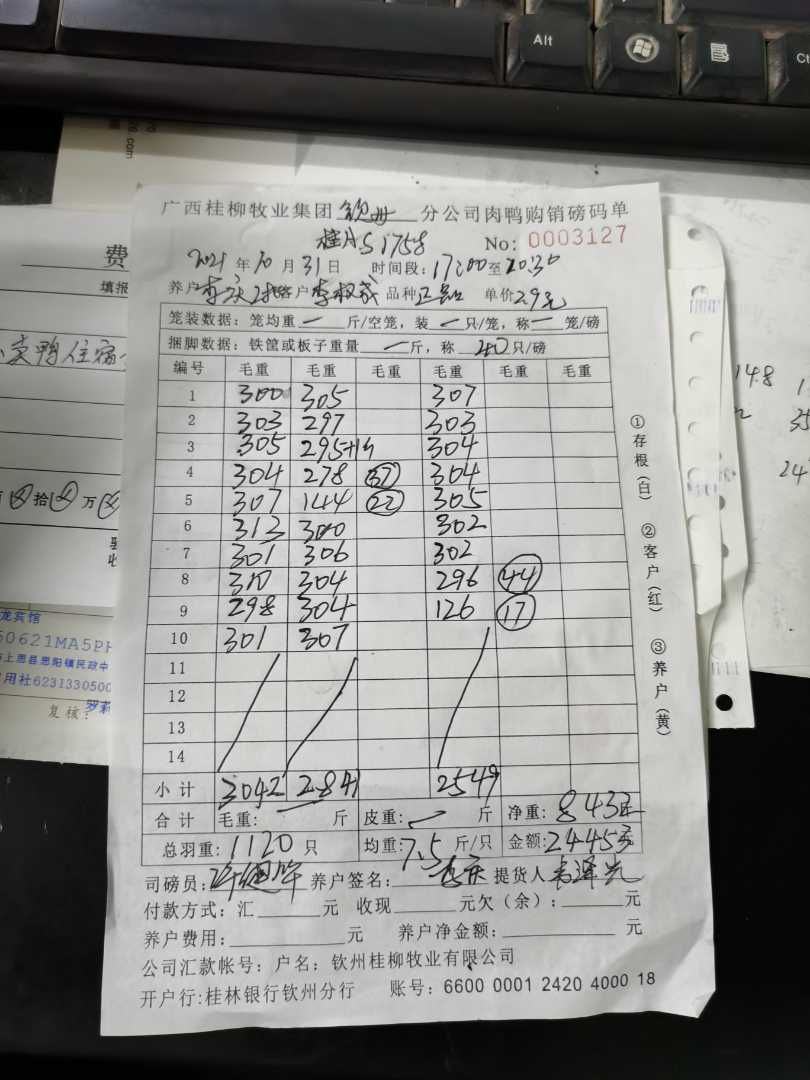 Alt
Ct
广西桂柳牧业集团钦州分公司肉鸭购销磅码单
桂AS1758
No: 0003127
2021年10月31日 时间段:17:00至20:30
养户 客户李叔茂 品种 单价2.9元
笼装数据:笼均重一斤/空笼,装一只/笼,称一笼/磅
捆脚数据:铁筐或板子重量一斤,称40只/磅
编号 毛重 毛重 毛重 毛重 毛重 毛重
1 300 305 307
2 303 297 303
3 305 295+1 304
4 304 278 37 304
5 307 144 22 305
6 313 300 302
7 301 306 302
8 310 304 296 44
9 298 304 126 17
10 301 307
11
12
13
14
小计 3042 2841 2549
合计 毛重: 斤 皮重: 斤 净重:8432
总羽重:1120只 均重:7.5斤/只 金额:24453
司磅员: 养户签名: 提货人
付款方式:汇 元 收现 元欠(余): 元
养户费用: 元 养户净金额: 元
公司汇款帐号:户名:钦州桂柳牧业有限公司
开户行:桂林银行钦州分行 账号:6600 0001 2420 4000 18
①存根(白) ②客户(红) ③养户(黄)
费
填报
卖鸭住宿
拾 万
龙宾馆
50621MA5PH
上思县思阳镇民政中
用社6231330500
复核:
14.8
24